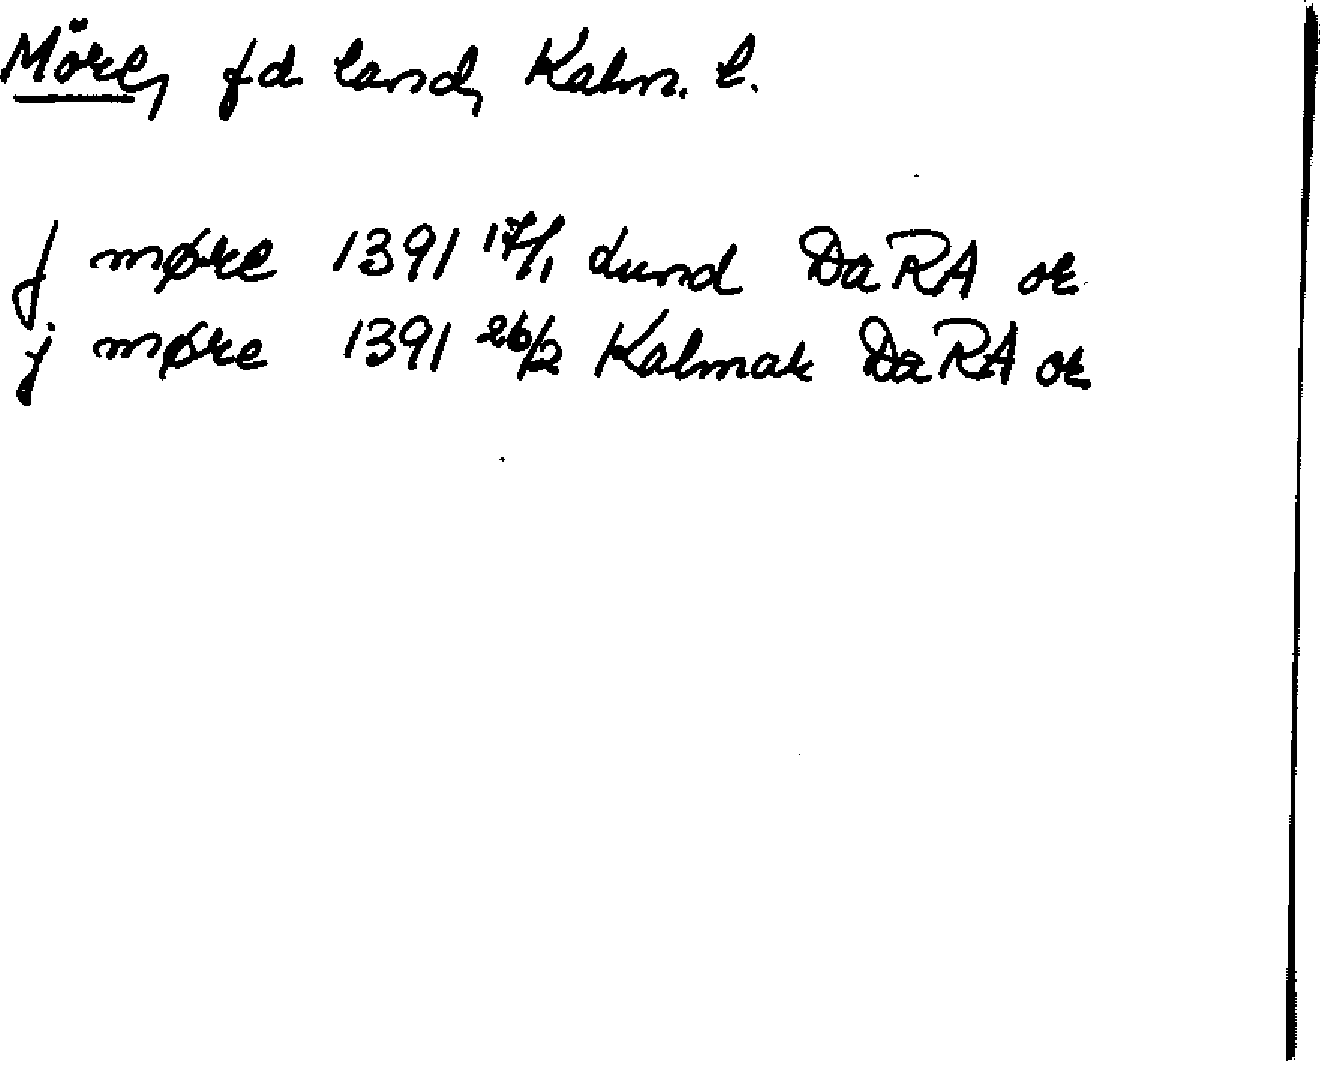 Möre, fd land, Kalm. l.
J møre 1391 17/1 Lund DaRA or
j møre 1391 26/2 Kalmar DaRA or